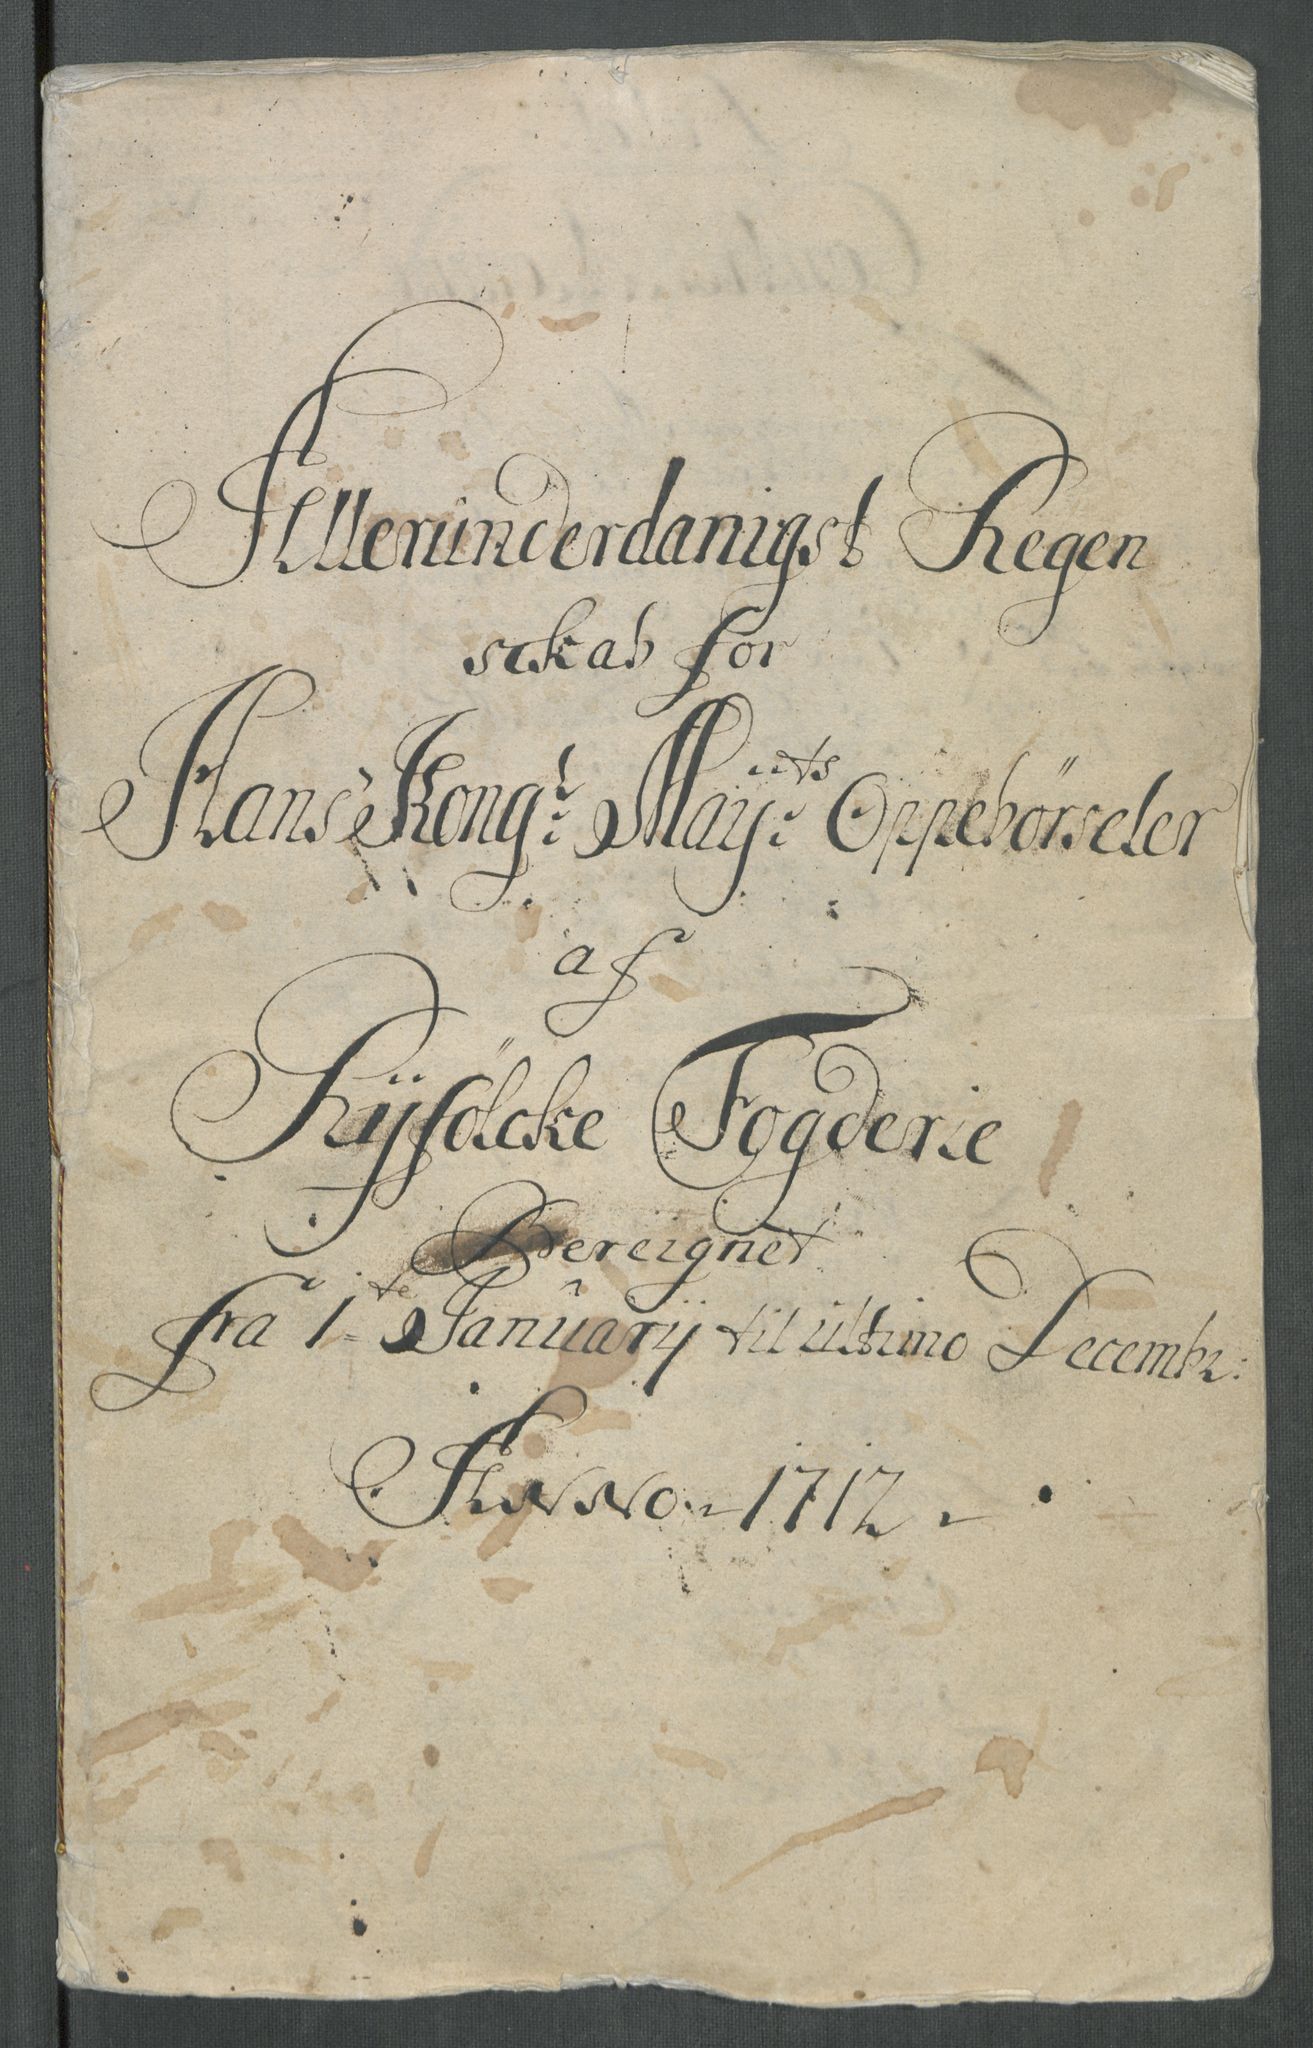 Allerunderdanigst Regen
schab for
Hans Kong: Mayts: Oppebörseler
af
Ryfölcke Fogderie
Bereignet
fra 1te January til ultimo Decembr:
Anno 1712